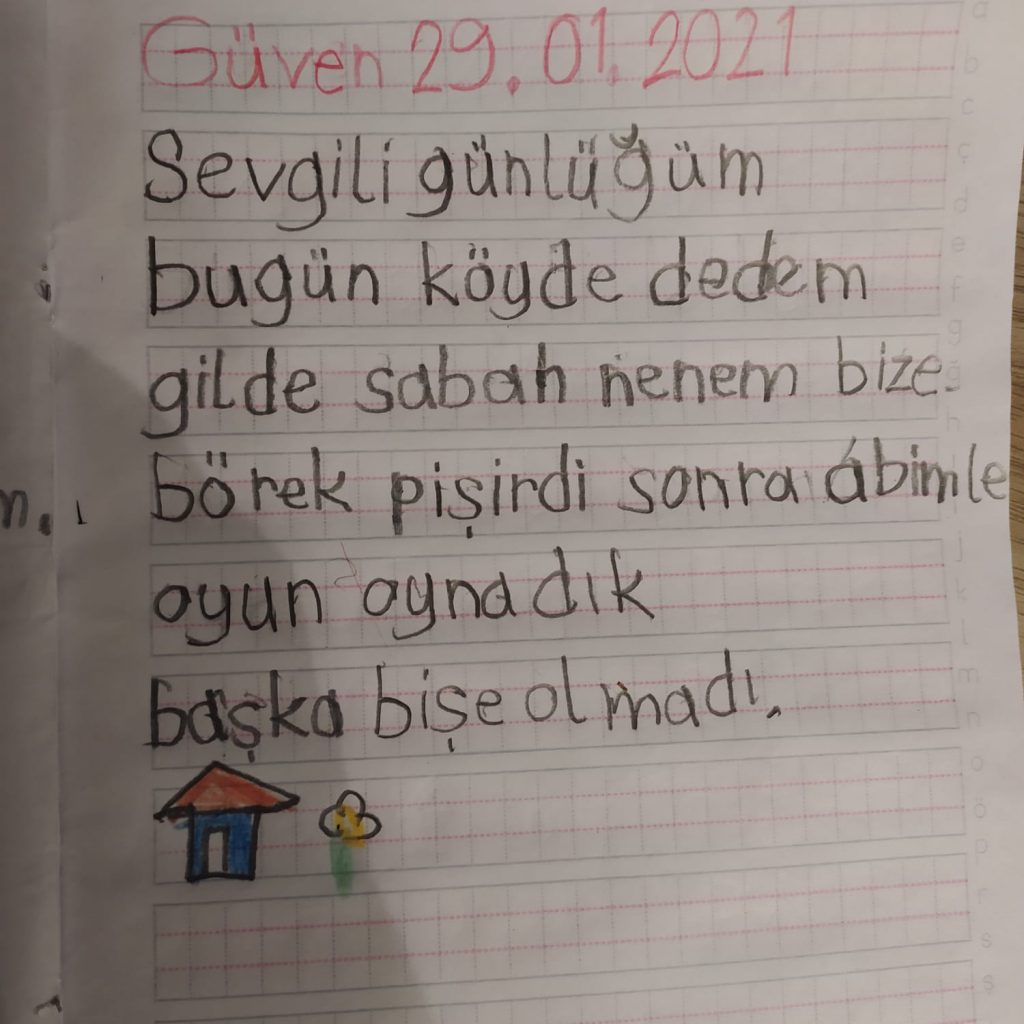 Güven 29.01.2021
Sevgili günlüğüm
bugün köyde dedem
gilde sabah nenem bize
börek pişirdi sonra abimle
oyun oynadık
başka bişe olmadı.